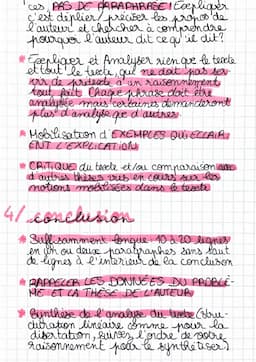 ces, PAS DE PARAPHRASE! Expliquer
c'est déplier/préciser les propos de
l'auteur et chercher à comprendre
pourquoi l'auteur dit ce qu'il dit?
* Expliquer et Analyser rien que le texte
et tout le texte qui ne doit pas
de prétexte d'un raisonnement
tout fait. Chaque phrase doit être
analysée mais certaines demanderont
plus d'analyse que d'autres.
* Mobilisation d'EXEMPLES QUI ECLAIR
ENT L'EXPLICATION
* CRITIQUE du texte et/ou comparaison
d'autres thèses vus en cours sur les
notions mobilisées dans le texte
4/ conclusion
* Suffisamment longue: 10 à 20 lignes
en un ou deux paragraphes sans saut
de lignes à l'intérieur de la conclusion
* RAPPELER LES DONNÉES DU PROBLÈ-
ME ET LA THÈSE DE L'AUTEUR
* Synthèse de l'analyse du texte (stru-
cturation linéaire comme pour la
disertation, suivez l'ordre de votre
raisonnement pour le synthétiser)